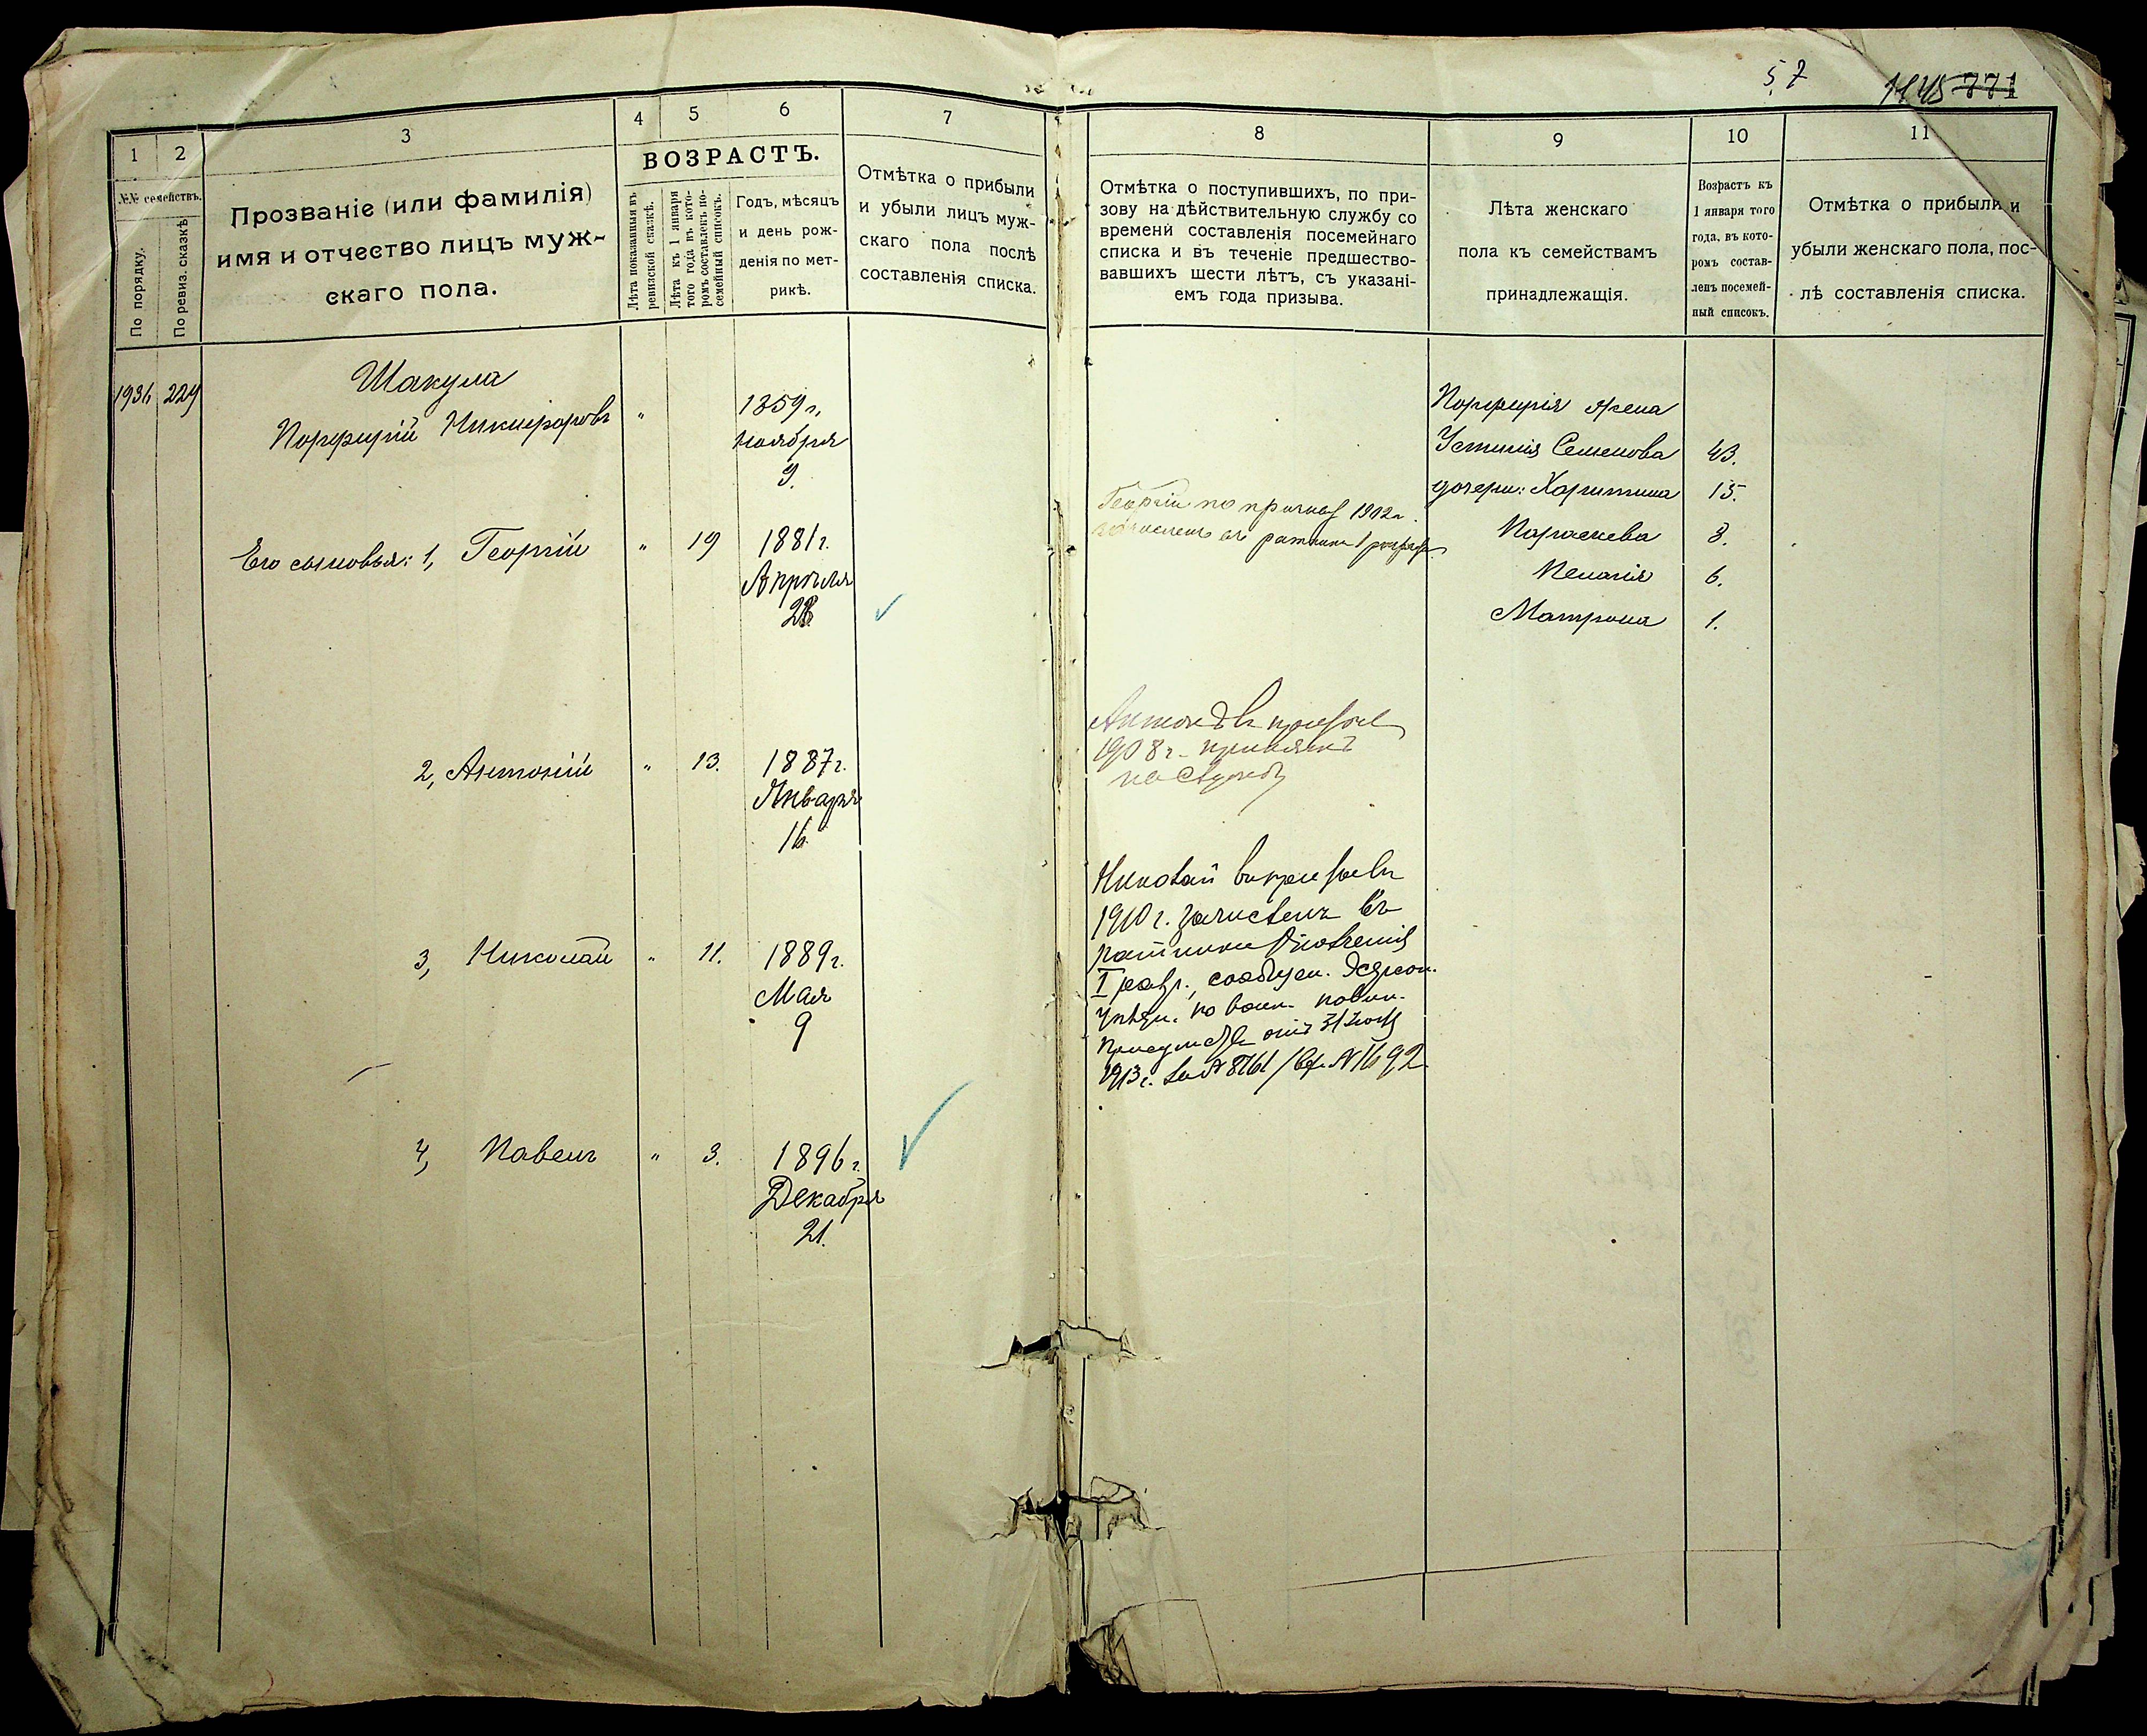 57
1145 771
1
2
3
4
5
6
7
№№ семействъ.
По порядку.
По ревиз. сказкѣ
Прозваніе (или фамилія)
имя и отчество лицъ муж-
скаго пола.
ВОЗРАСТЪ.
Лѣта показанныя въ
ревизской сказкѣ.
Лѣта къ 1 января
того года въ кото-
ромъ составленъ по-
семейный списокъ.
Годъ, мѣсяцъ
и день рож-
денія по мет-
рикѣ.
Отмѣтка о прибыли
и убыли лицъ муж-
скаго пола послѣ
составленія списка.
1936 229
Шакула
Порфирій Никифоровъ "
1859 г.
ноября
9.
Его сыновья: 1, Георгій " 19 1881 г.
Апрѣля
28.
2, Антоній " 13. 1887 г.
Января
16
3, Николай " 11. 1889 г.
Мая
9
4, Павелъ " 3. 1896 г.
Декабря
21.
8
9
10
11
Отмѣтка о поступившихъ, по при-
зову на дѣйствительную службу со
времени составленія посемейнаго
списка и въ теченіе предшество-
вавшихъ шести лѣтъ, съ указані-
емъ года призыва.
Лѣта женскаго
пола къ семействамъ
принадлежащія.
Возрастъ къ
1 января того
года, въ кото-
ромъ состав-
ленъ посемей-
ный списокъ.
Отмѣтка о прибыли и
убыли женскаго пола, пос-
лѣ составленія списка.
Георгій по призыву 1902 г.
зачисленъ въ ратники 1 разряда
Антонъ въ призывѣ
1908 г. принятъ
на службу
Николай въ призывѣ
1910 г. зачисленъ въ
ратники ополченія
I разр., сообщен.
по воин. повин.
Присутствія отъ 31
1913 г. за № 8761 / № 1692
Порфирія жена
Устинія Семенова 43.
дочери: Харитина 15.
Параскева 8.
Пелагія 6.
Матрона 1.